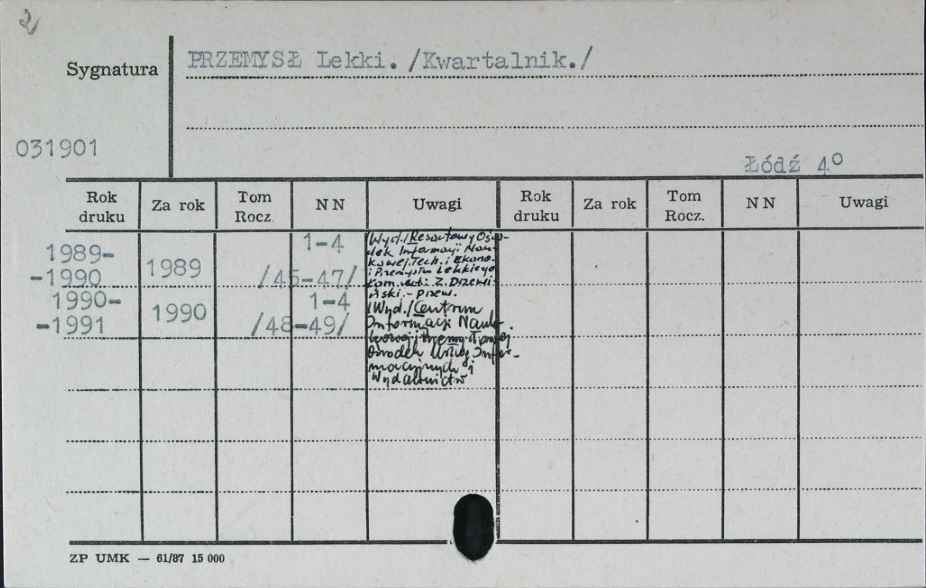 2
PRZEMYSŁ Lekki. /Kwartalnik./
Sygnatura
031901
Łódź 4º
Rok druku Za rok Tom Rocz. N N Uwagi Rok druku Za rok Tom Rocz. N N Uwagi
1989-
-1990 1989 /45-47/ 1-4
/Wyd./Resortowy Ośro-
dek Informacji Nau-
kowej, Tech. i Ekono.
i Przemysłu Lekkiego
Kom. red.: Z. Drzewi-
ński. - przew.
1990-
-1991 1990 /48-49/ 1-4
/Wyd./Centrum
Informacji Nauko-
wej i Przemysłowej
Ośrodek Usług Infor-
macyjnych i
Wydawnictw
ZP UMK — 61/87 15 000